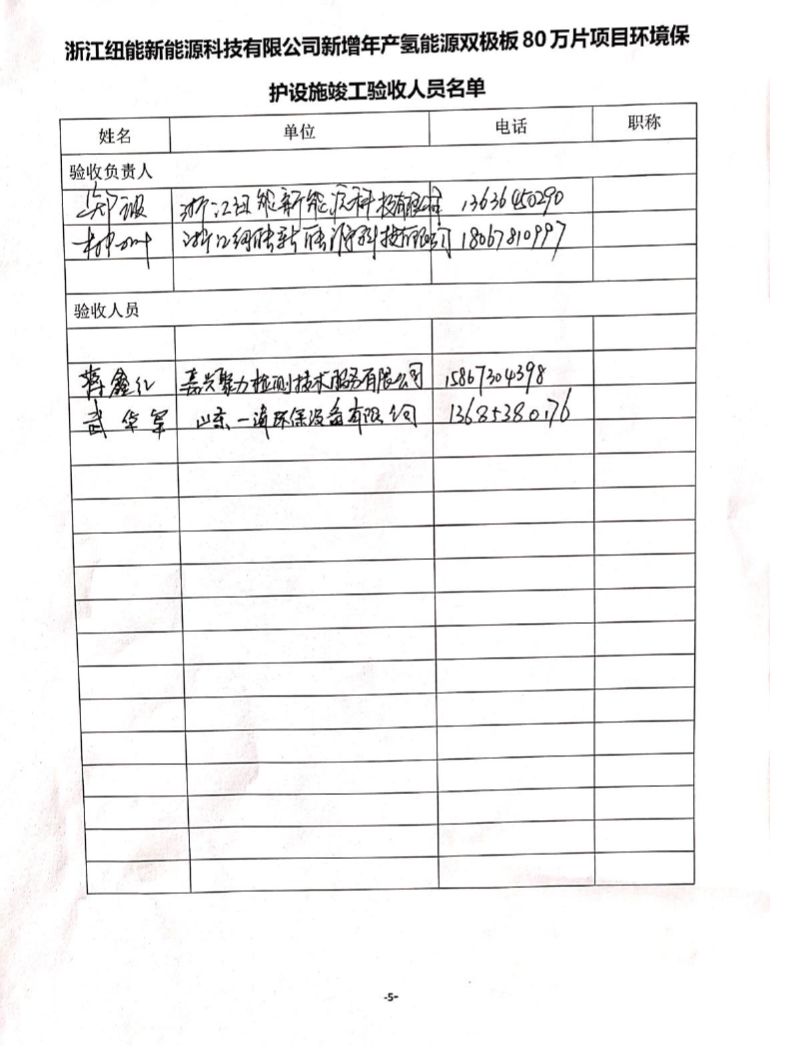 浙江纽能新能源科技有限公司新增年产氢能源双极板80万片项目环境保
护设施竣工验收人员名单
姓名 单位 电话 职称
验收负责人
浙江纽能新能源科技有限公司 13636450290
浙江纽能新能源科技有限公司 18067810997
验收人员
蒋鑫红 嘉兴聚力检测技术服务有限公司 15867304398
武华军 山东一涛环保设备有限公司 13685380176
-5-